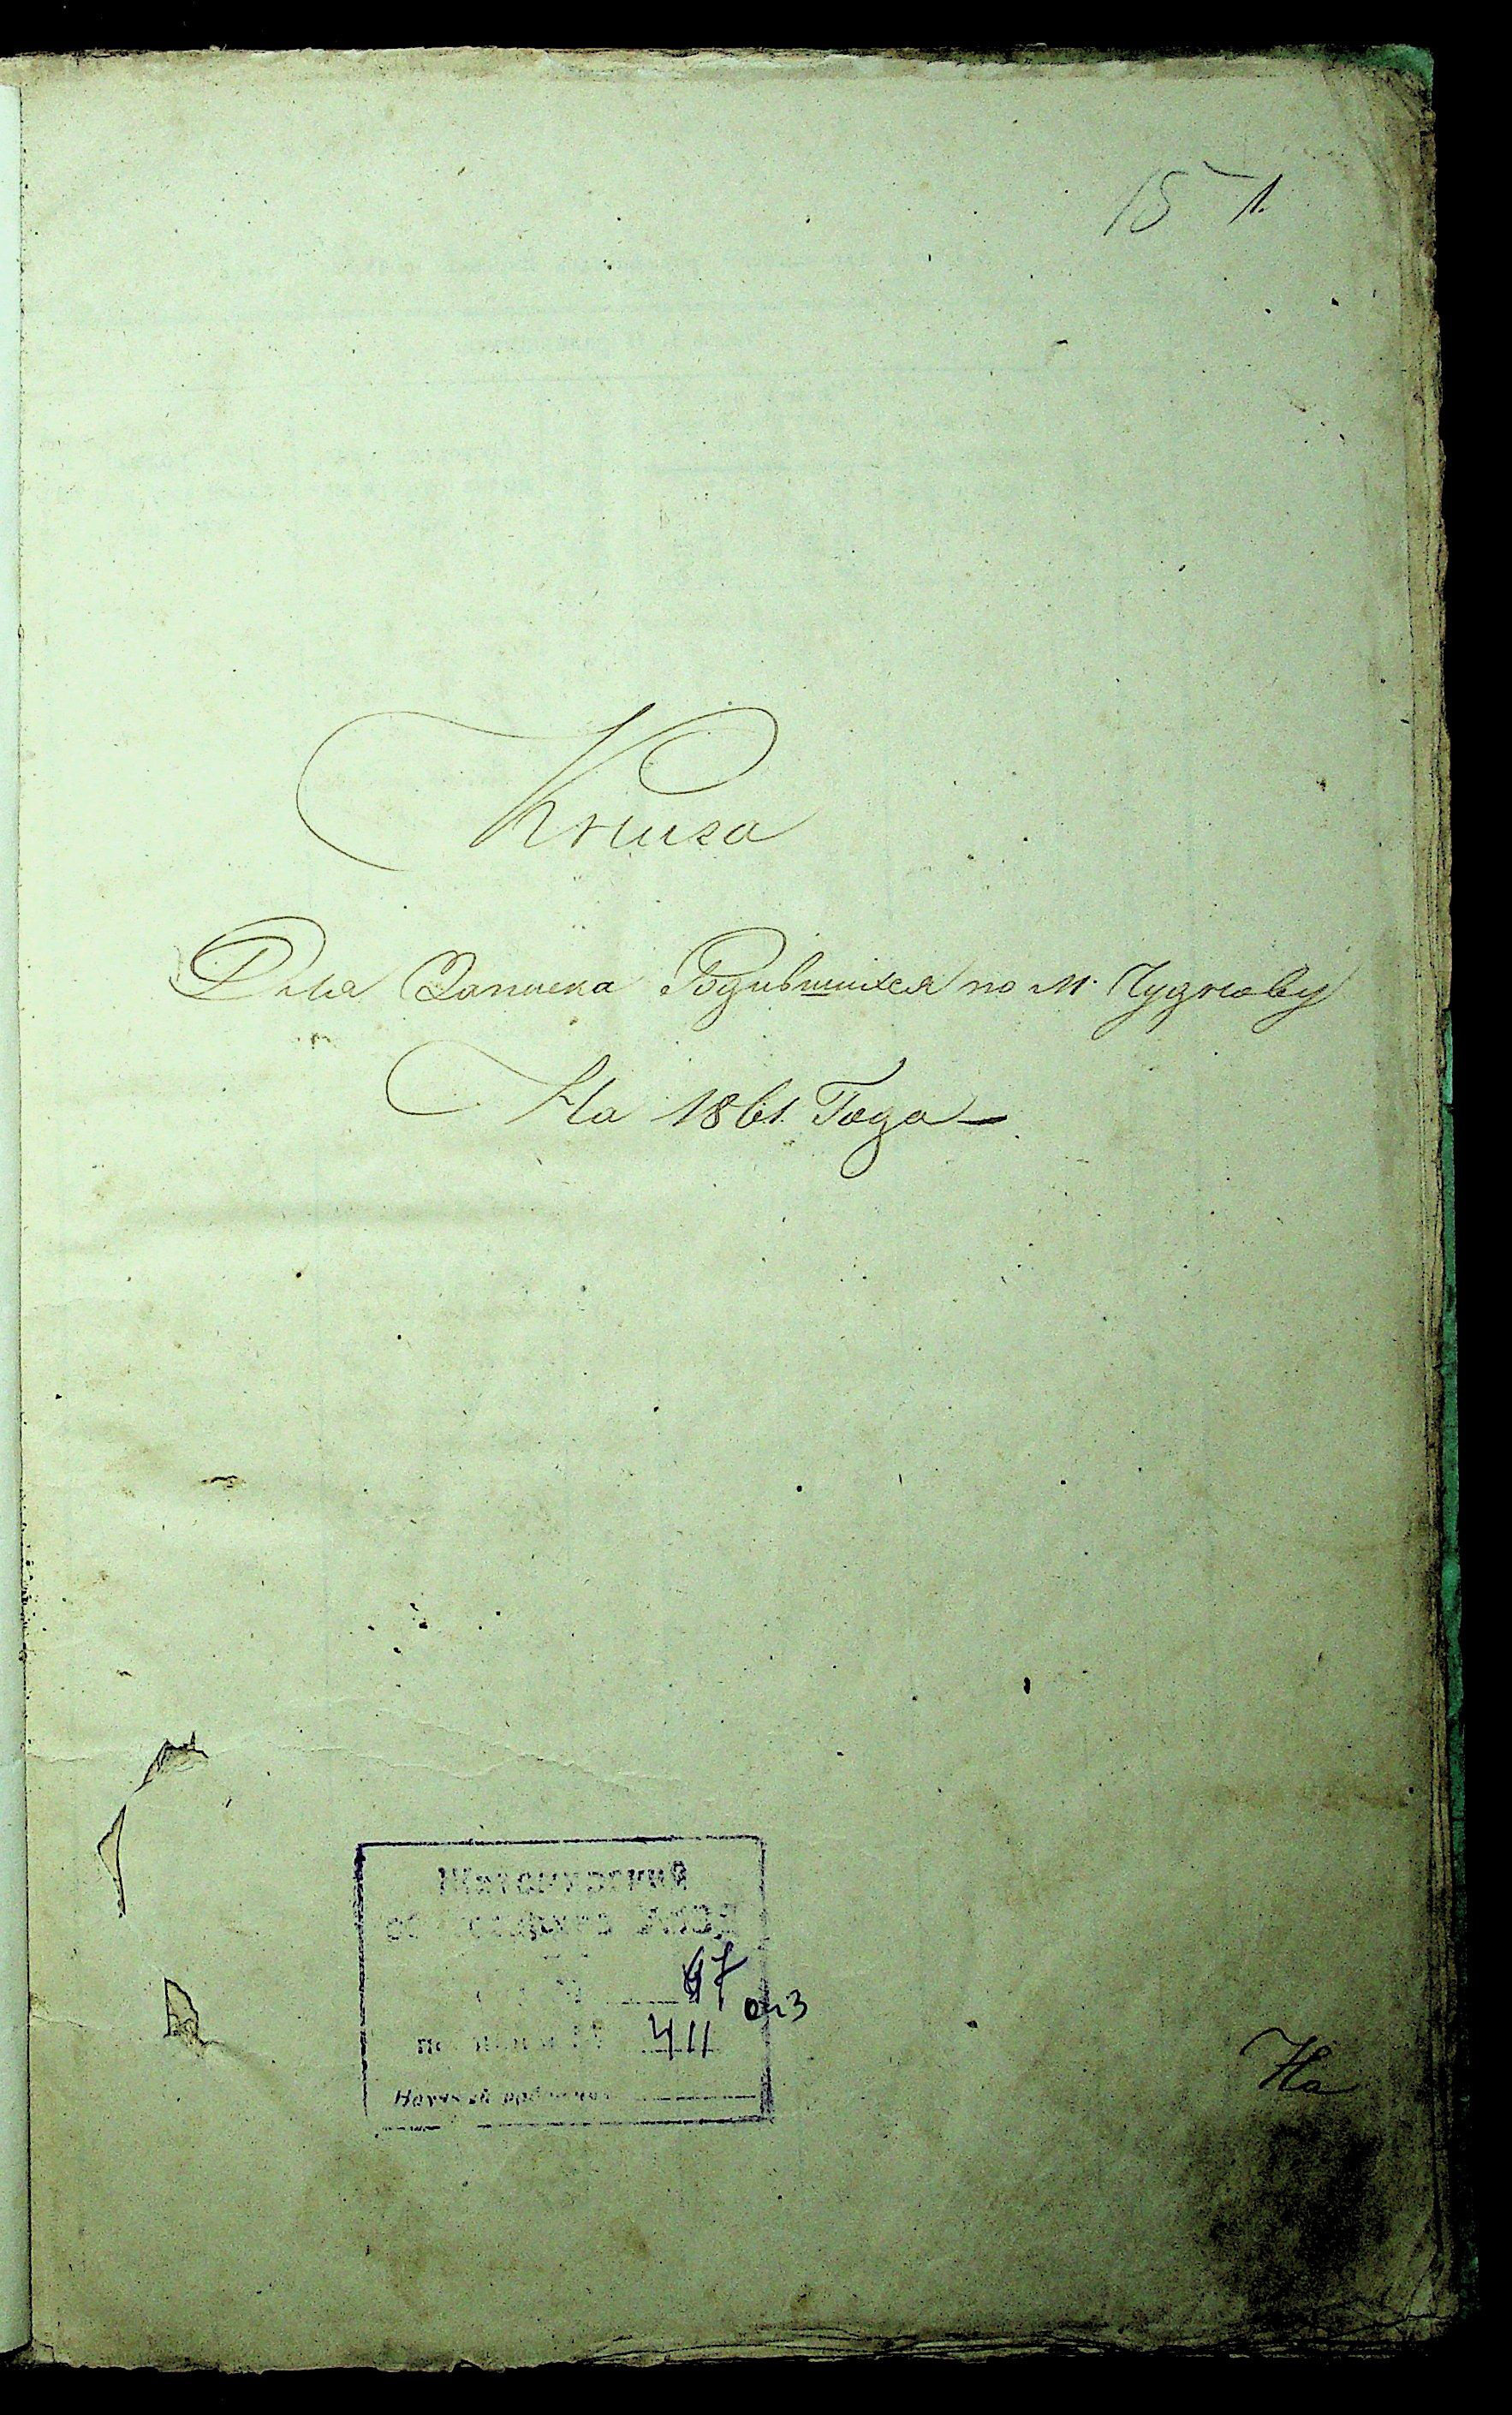 15 1.
Книга
Для Записка Родившихся по м. Чуднову
На 1861 Года
Житомирский
67
оч3
411
На